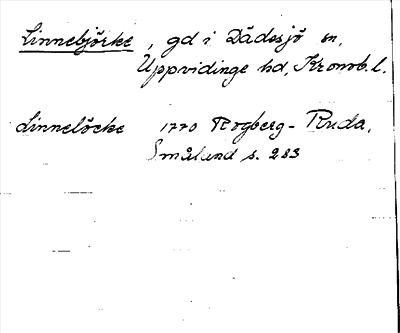 Linnebjörke, gd i Dädesjö sn,
Uppvidinge hd, Kronob. l.
Linnelöcke 1770 Rogberg-Ruda,
Småland s. 283